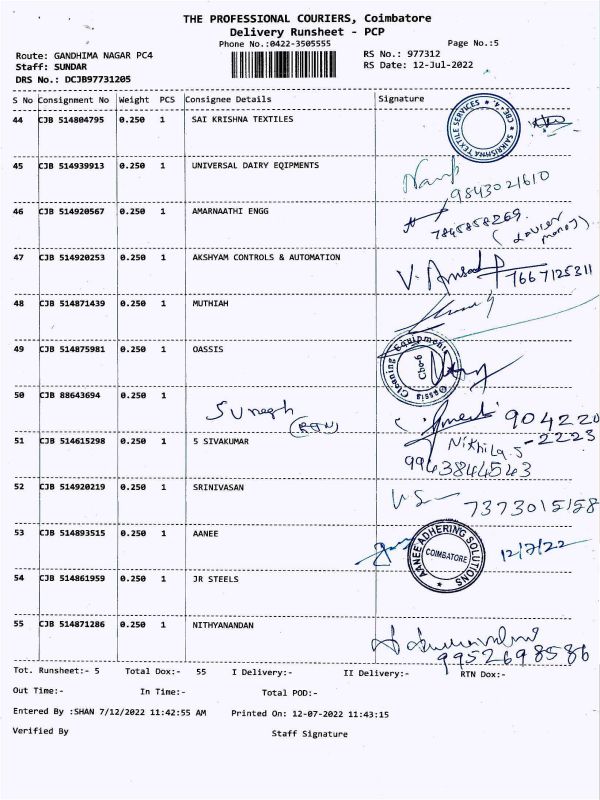 THE PROFESSIONAL COURIERS, Coimbatore
Delivery Runsheet - PCP
Phone No.:0422-3505555 Page No.:5
Route: GANDHIMA NAGAR PC4 RS No.: 977312
Staff: SUNDAR RS Date: 12-Jul-2022
DRS No.: DCJB97731205
S No Consignment No Weight PCS Consignee Details Signature
44 CJB 514804795 0.250 1 SAI KRISHNA TEXTILES
SAIKRISHNA TEXTILE SERVICES CBE-4.
45 CJB 514939913 0.250 1 UNIVERSAL DAIRY EQIPMENTS
9843021610
46 CJB 514920567 0.250 1 AMARNAATHI ENGG
7845858269
47 CJB 514920253 0.250 1 AKSHYAM CONTROLS & AUTOMATION
7667125311
48 CJB 514871439 0.250 1 MUTHIAH
49 CJB 514875981 0.250 1 OASSIS
Oassis Cleaning Equipments
Cbe-6
50 CJB 88643694 0.250 1
Suresh
904220
-2223
51 CJB 514615298 0.250 1 S SIVAKUMAR
Nithila.S
9943844543
52 CJB 514920219 0.250 1 SRINIVASAN
7373015158
53 CJB 514893515 0.250 1 AANEE
AANEE ADHERING SOLUTIONS
COIMBATORE
12/7/22
54 CJB 514861959 0.250 1 JR STEELS
55 CJB 514871286 0.250 1 NITHYANANDAN
9952698586
Tot. Runsheet:- 5 Total Dox:- 55 I Delivery:- II Delivery:- RTN Dox:-
Out Time:- In Time:- Total POD:-
Entered By :SHAN 7/12/2022 11:42:55 AM Printed On: 12-07-2022 11:43:15
Verified By Staff Signature